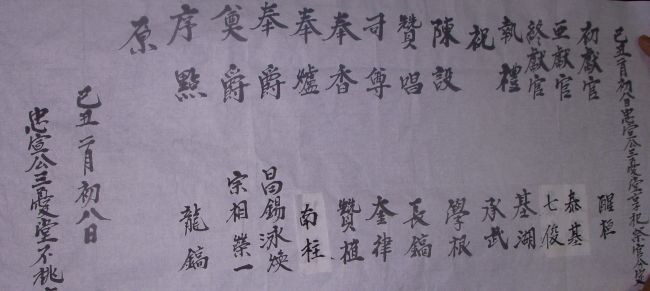 己丑二月初八日忠宣公三憂堂享祀祭官分定
初獻官 醒植
亞獻官 泰基
終獻官 七俊
執禮 基湖
祝 承武
陳設 學根
贊唱 長鎬
司尊 奎律
奉香 贊植
奉爐 南柱
奉爵 昌錫 泳煥
奠爵 宗相 榮一
序點 龍鎬
原
己丑二月初八日
忠宣公三憂堂不祧